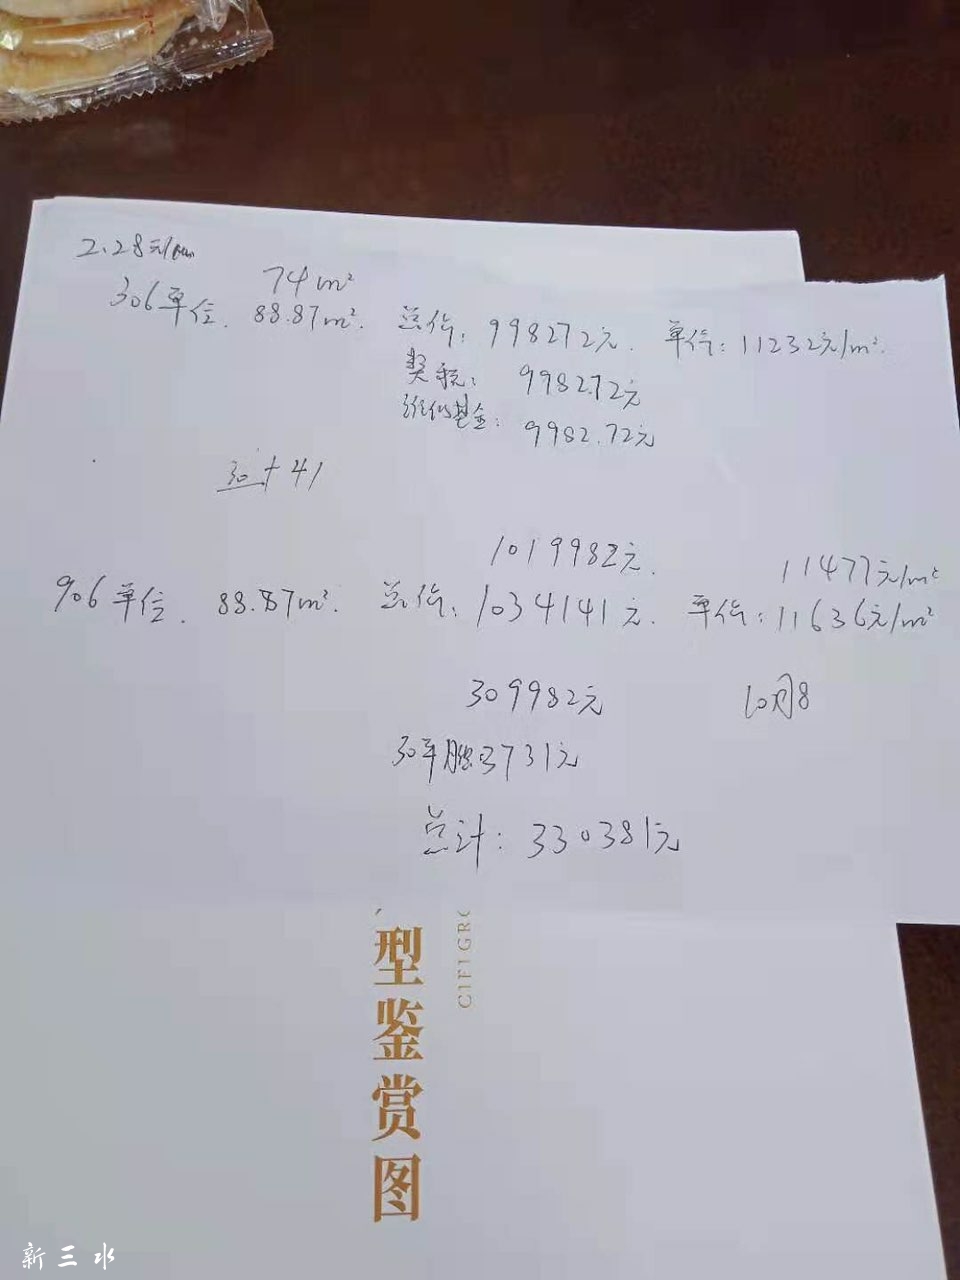 2.28元/
74m²
306单位. 88.87m². 总价: 998272元. 单价: 11232元/m².
契税: 9982.72元
维修基金: 9982.72元
30+41
1019982元. 11477元/m²
906单位. 88.87m². 总价: 1034141元. 单价: 11636元/m²
309982元 10月8
30年 3731元
总计: 330381元
型鉴赏图
CIFI GRO
新三水